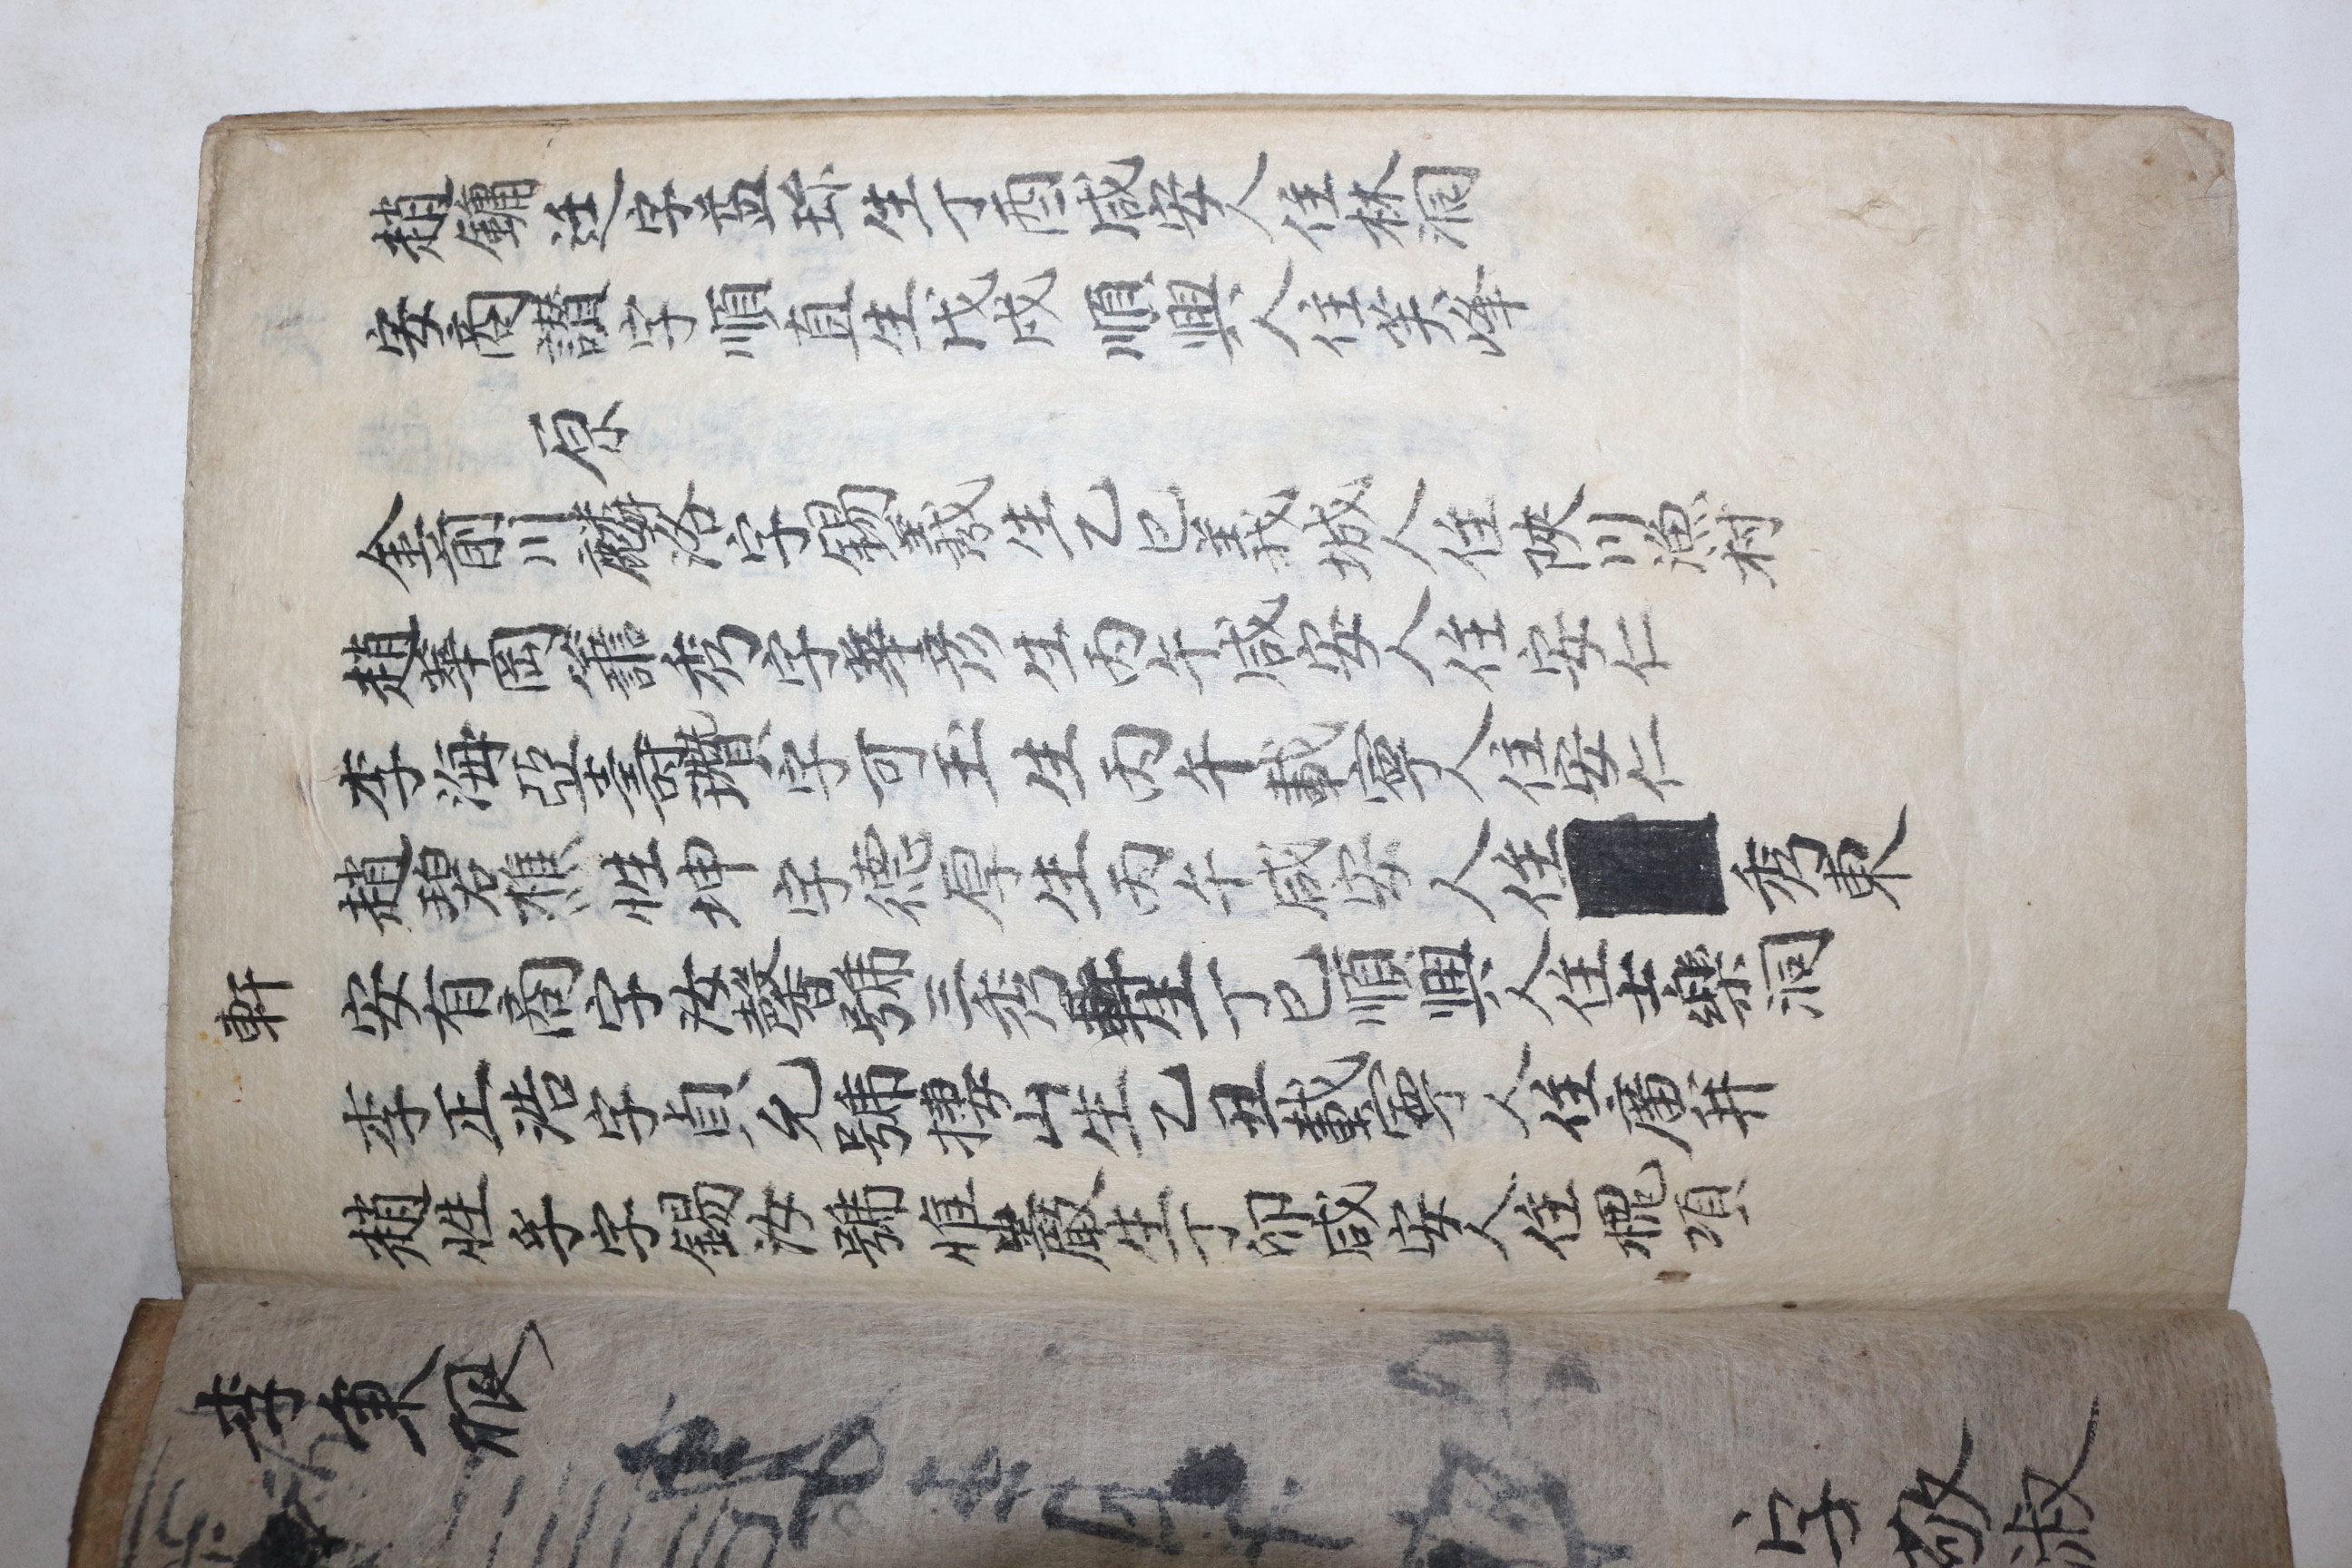 趙鏞廷字益珎生丁酉咸安人住林洞
安商讃字順直生戊戌 順興人住芙峰
原
金前川麟洛字錫羲生乙巳義城人住陜川漁村
趙華岡簷秀字華彦生丙午咸安人住安仁
李海亞壽瓚字可玉生丙午載寧人住安仁
趙碧樵性坤字德厚生丙午咸安人住秀東
軒
安有商字汝馨號三秀軒生丁巳順興人住士樂洞
李正浩字貞允號摟山生乙丑載寧人住廣井
趙性孚字錫汝號惟巖生丁卯咸安人住槐項
李秉
字敬淑